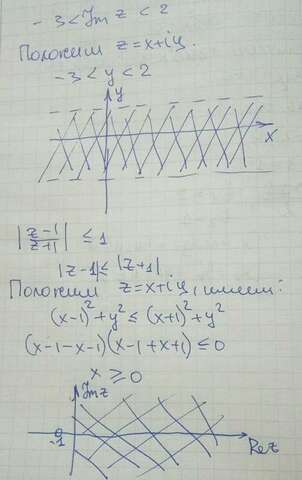 -3 < Im z < 2
Положим z = x+iy.
-3 < y < 2
y
x
|z-1/z+1| ≤ 1
|z-1| ≤ |z+1|.
Положим z = x+iy, имеем:
(x-1)² + y² ≤ (x+1)² + y²
(x-1-x-1)(x-1+x+1) ≤ 0
x ≥ 0
Im z
0
-1
Re z